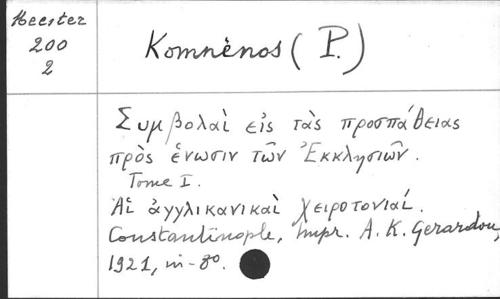 Heester
200
2
Komnènos (P.)
Συμβολαὶ εἰς τὰς προσπάθειας
πρὸς ἕνωσιν τῶν Ἐκκλησιῶν.
Tome I.
Αἱ ἀγγλικανικαὶ χειροτονίαί.
Constantinople, Impr. A. K. Gerardou,
1921, in-8o.